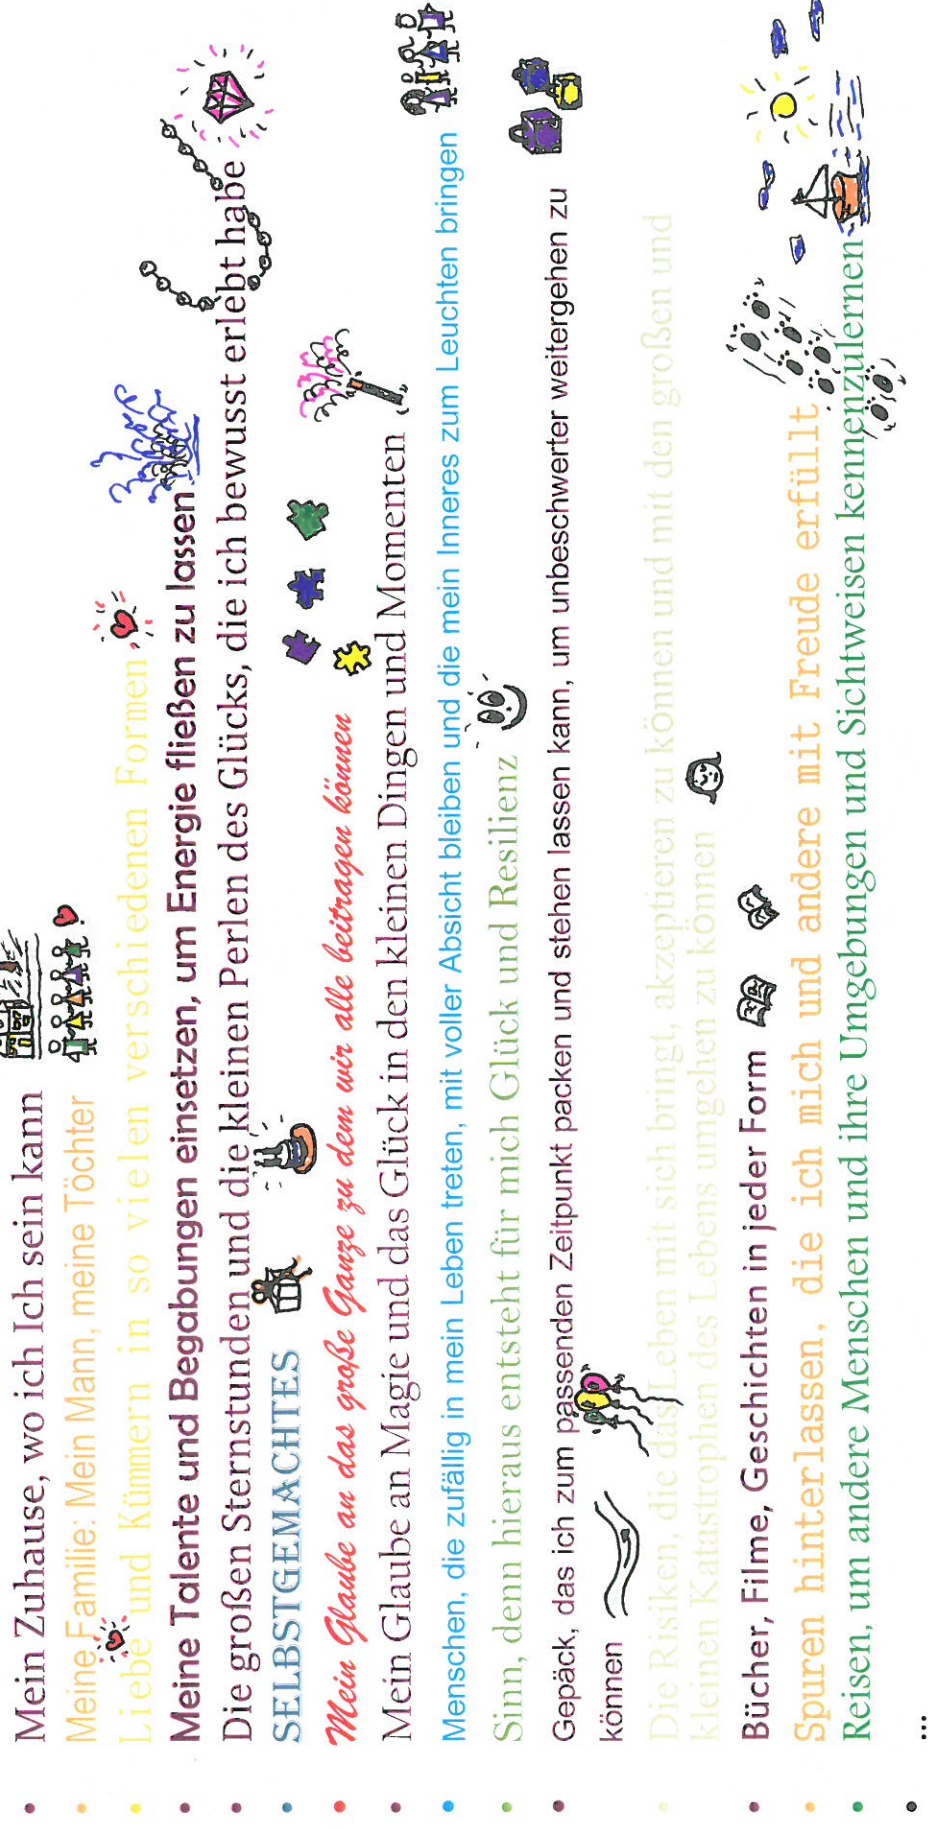 • Mein Zuhause, wo ich Ich sein kann
• Meine Familie: Mein Mann, meine Töchter
• Liebe und Kümmern in so vielen verschiedenen Formen
• Meine Talente und Begabungen einsetzen, um Energie fließen zu lassen
• Die großen Sternstunden und die kleinen Perlen des Glücks, die ich bewusst erlebt habe
• SELBSTGEMACHTES
• Mein Glaube an das große Ganze zu dem wir alle beitragen können
• Mein Glaube an Magie und das Glück in den kleinen Dingen und Momenten
• Menschen, die zufällig in mein Leben treten, mit voller Absicht bleiben und die mein Inneres zum Leuchten bringen
• Sinn, denn hieraus entsteht für mich Glück und Resilienz
• Gepäck, das ich zum passenden Zeitpunkt packen und stehen lassen kann, um unbeschwerter weitergehen zu
können
• Die Risiken, die das Leben mit sich bringt, akzeptieren zu können und mit den großen und
kleinen Katastrophen des Lebens umgehen zu können
• Bücher, Filme, Geschichten in jeder Form
• Spuren hinterlassen, die ich mich und andere mit Freude erfüllt
• Reisen, um andere Menschen und ihre Umgebungen und Sichtweisen kennenzulernen
• ...